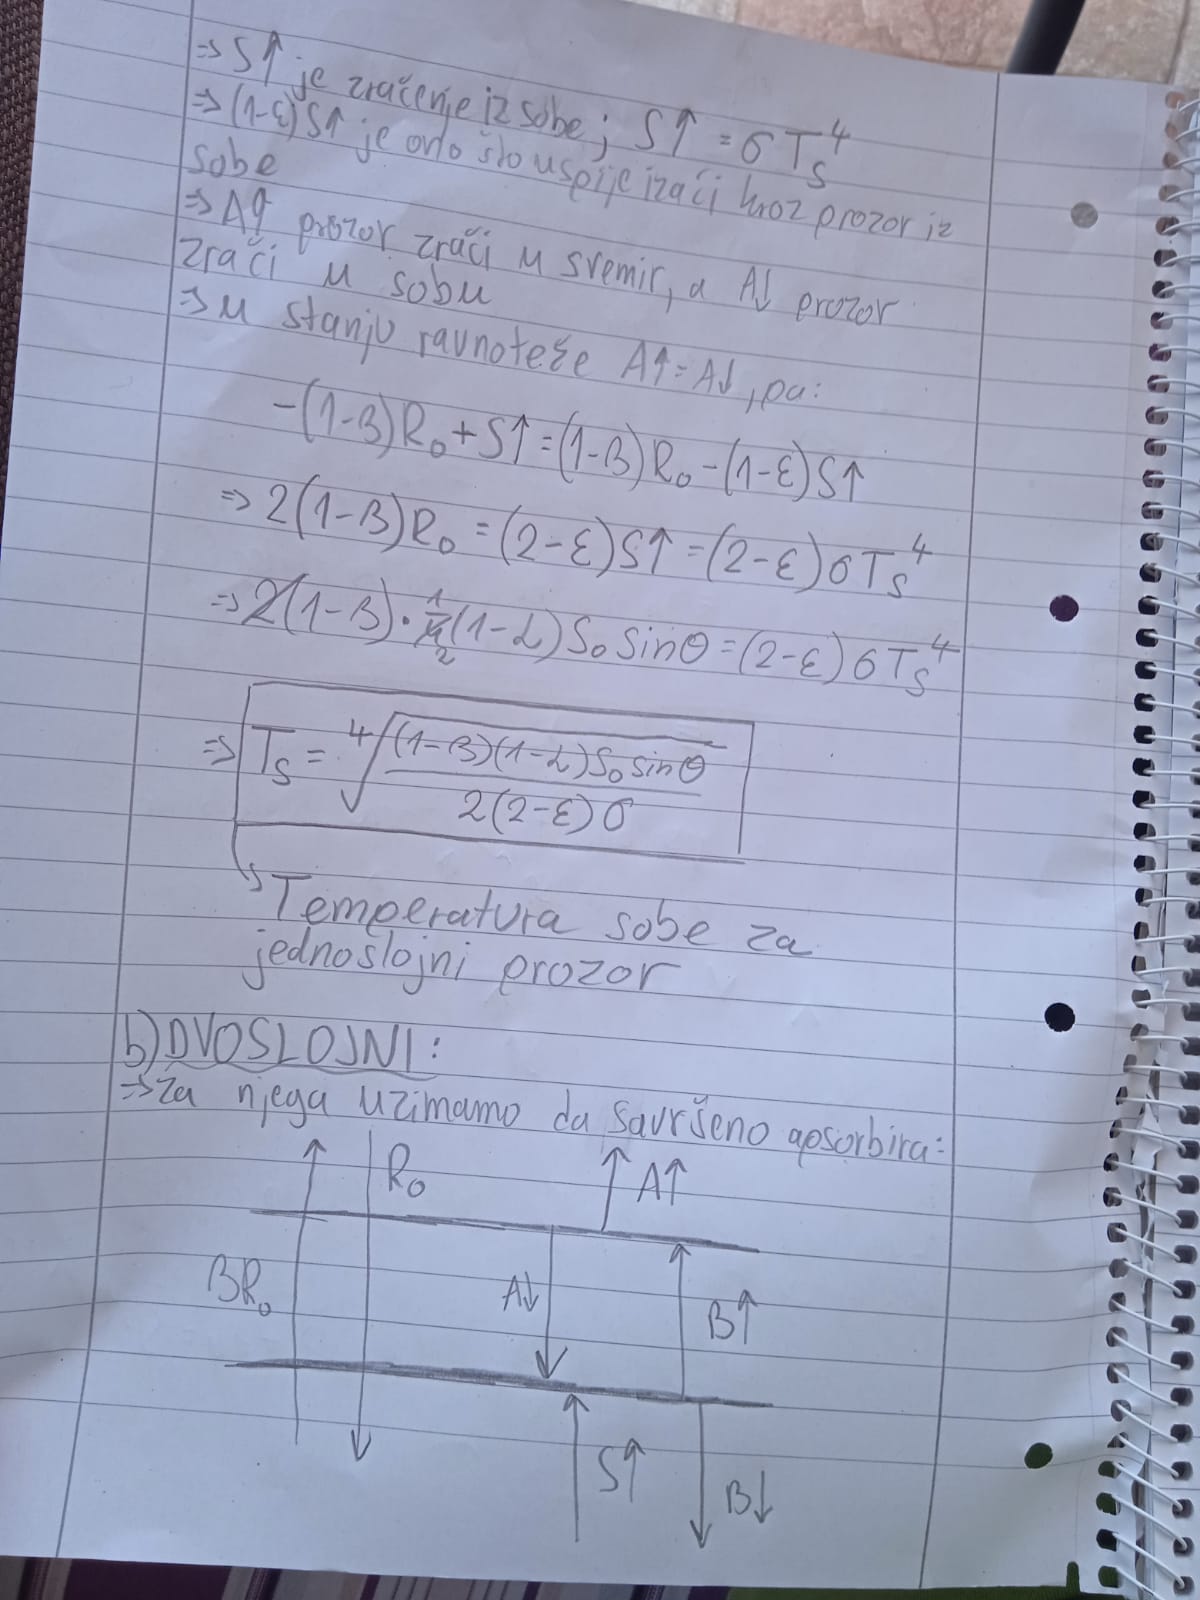 ⇒ S↑ je zračenje iz sobe; S↑ = σTₛ⁴
⇒ (1-ε)S↑ je ono što uspije izaći kroz prozor iz
sobe
⇒ A↑ prozor zrači u svemir, a A↓ prozor
zrači u sobu
⇒ u stanju ravnoteže A↑=A↓, pa:
-(1-β)R₀+S↑=(1-β)R₀-(1-ε)S↑
⇒ 2(1-β)R₀=(2-ε)S↑=(2-ε)σTₛ⁴
⇒ 2(1-β)·1/4(1-α)S₀ sinθ=(2-ε)σTₛ⁴
2
⇒ Tₛ = ⁴√((1-β)(1-α)S₀ sinθ / 2(2-ε)σ)
↳ Temperatura sobe za
jednoslojni prozor
b) DVOSLOJNI:
⇒ za njega uzimamo da savršeno apsorbira:
R₀
A↑
βR₀
A↓
B↑
S↑
B↓